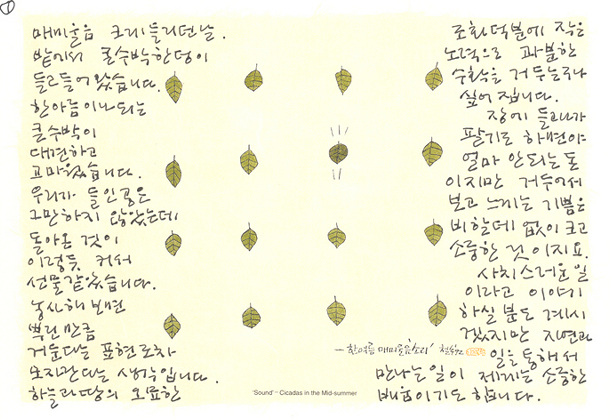 ①
매미울음 크게 들리던 날.
밭에서 큰수박 한덩이
들고 들어왔습니다.
한아름이나 되는
큰수박이
대견하고
고마웠습니다.
우리가 들인 공은
그만하지 않았는데
돌아온 것이
이렇듯 커서
선물 같았습니다.
농사 해 보면
뿌린만큼
거둔다는 표현조차
모자란다는 생각입니다.
하늘과 땅의 오묘한
조화 덕분에 작은
노력으로 과분한
수확을 거두는구나
싶어 집니다.
장에 들고 나가
팔기로 하면야
얼마 안되는 돈
이지만 거두어서
보고 느끼는 기쁨은
비할데 없이 크고
소중한 것이지요.
사치스러운 일
이라고 이야기
하실 분도 계시
겠지만 자연과
일을 통해서
만나는 일이 제게는 소중한
배움이기도 합니다.
-한여름 매미울음'소리'
'Sound' - Cicadas in the Mid-summer